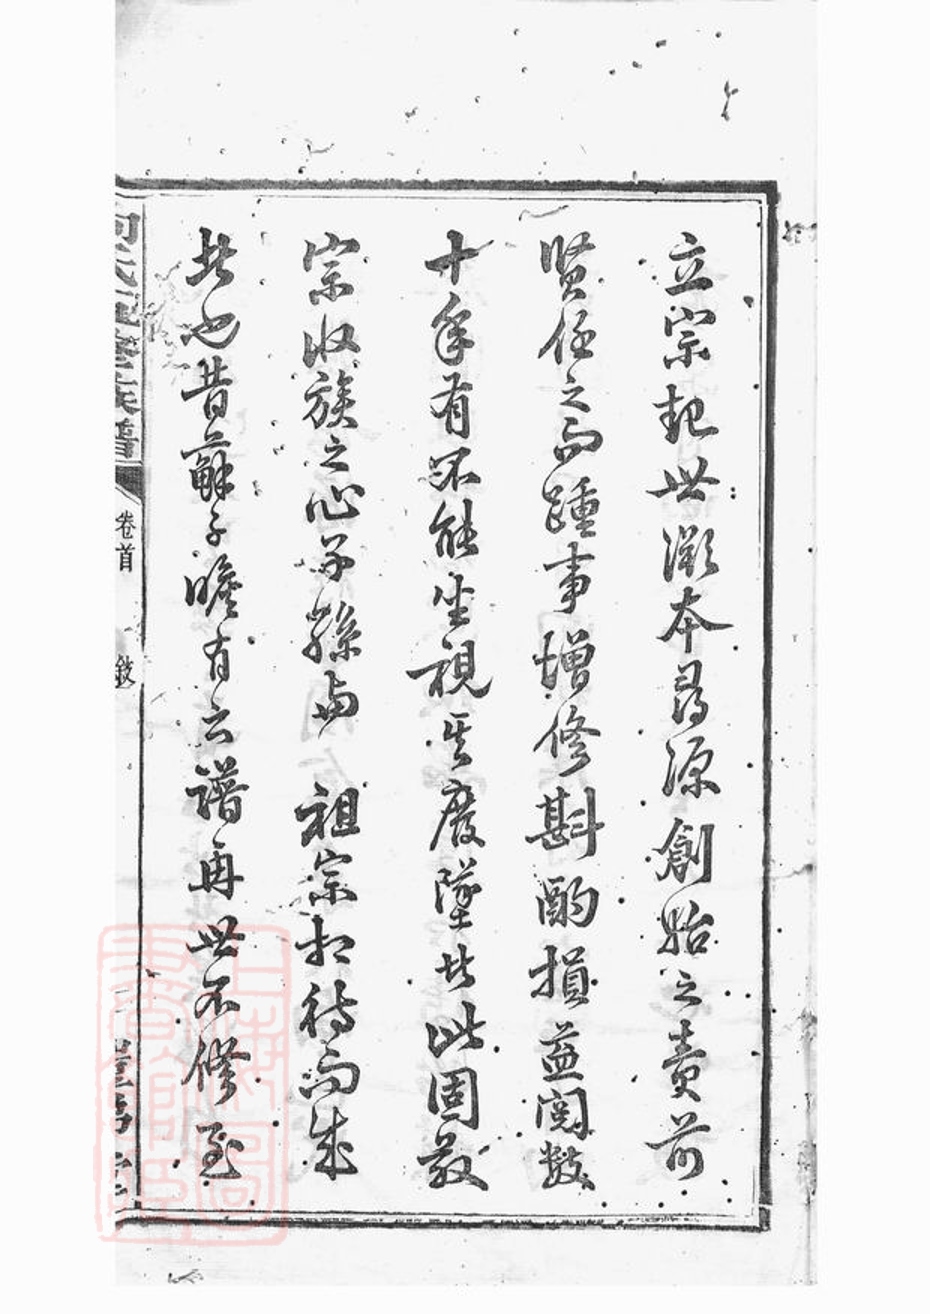 立宗紀世溯本尋源創始之責前
賢任之而踵事增修斟酌損益閱數
十年有不能坐視其廢墜者此固敬
宗收族之心子孫與祖宗相待而成
者也昔蘇子瞻有云譜再世不修至
氏重修族譜
卷首
敘
上海圖書館